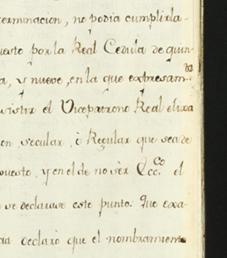 terminacion, no podia cumplirla
uesto por la Real Cedula de quin
a, y nueve, en la que expresam
da
vistir el Vicepatrono Real elixa
on secular, ò Regular que sea de
puesto, y en el de no ser Ecc.co el
se declarase este punto. Que exa
declarò que el nombramiento